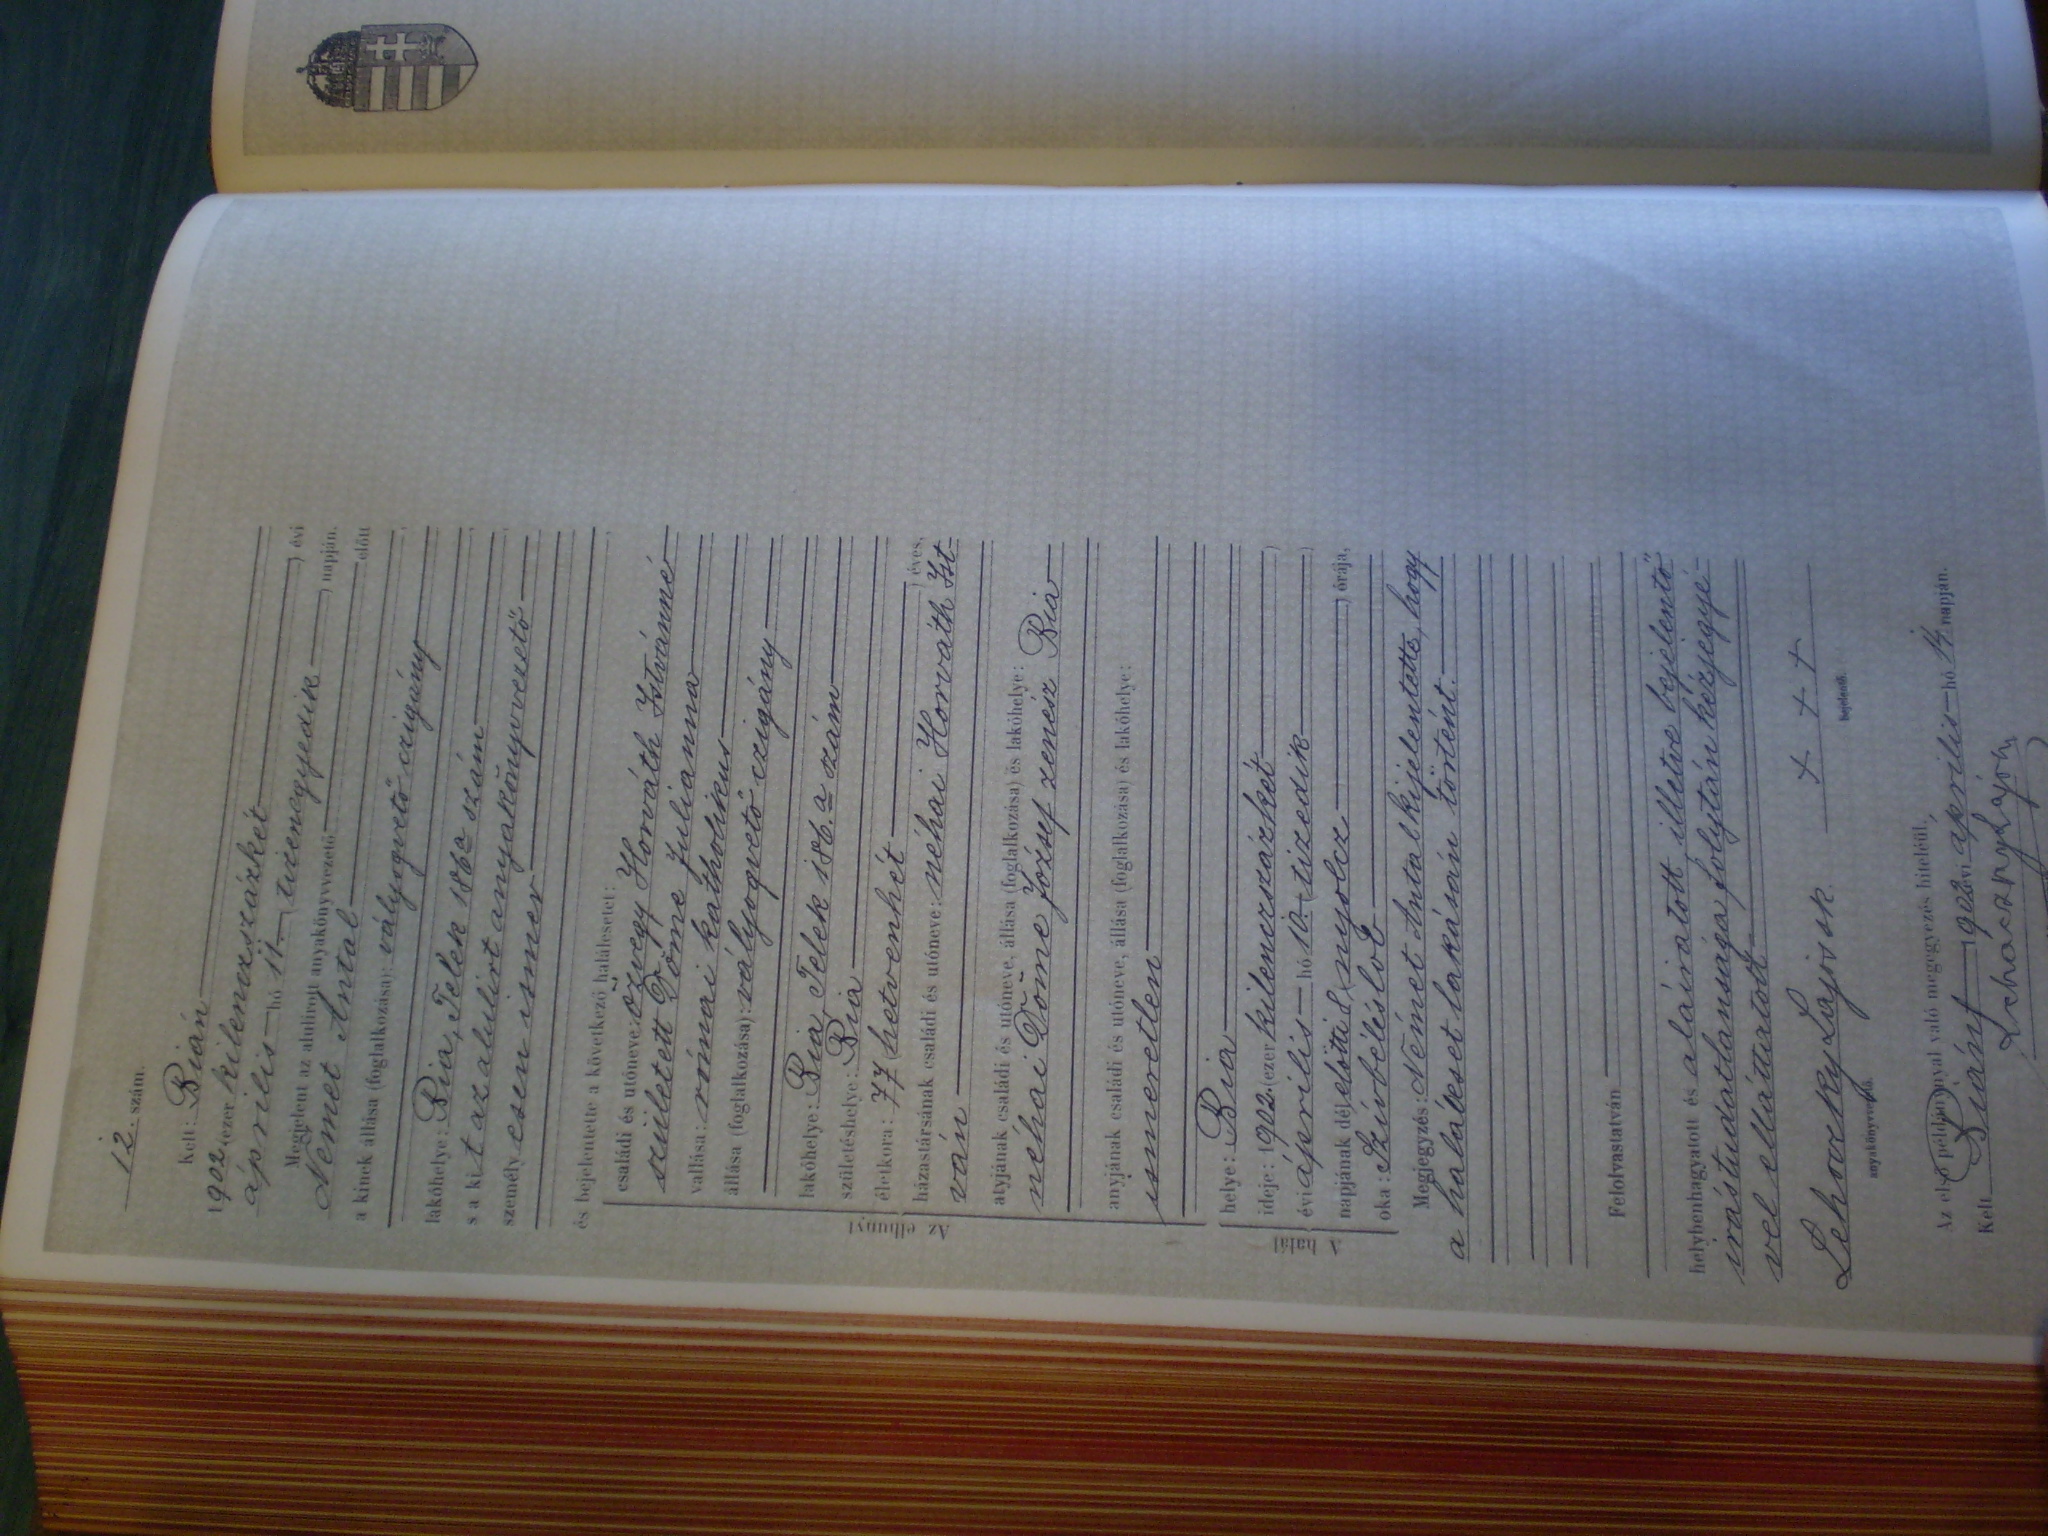 12. szám.
Kelt: Bián
1902 ezer kilenczszázkét
április hó 11. (tizenegyedik) évi
napján.
Megjelent az alulirott anyakönyvvezető előtt
Német Antal
a kinek állása (foglalkozása): vályogvető czigány
lakóhelye: Bia, Telek 186 a szám
s a kit az alulirt anyakönyvvezető
személyesen ismer
és bejelentette a következő halálesetet:
Az elhunyt
családi és utóneve: özvegy Horváth Istvánné
született Döme Julianna
vallása: római katholikus
állása (foglalkozása): vályogvető czigány
lakóhelye: Bia, Telek 186. a szám
születéshelye: Bia
életkora: 77 (hetvenhét) éves,
házastársának családi és utóneve: néhai Horváth Ist-
ván
atyjának családi és utóneve, állása (foglalkozása) és lakóhelye:
néhai Döme József zenész Bia
anyjának családi és utóneve, állása (foglalkozása) és lakóhelye:
ismeretlen
A halál
helye: Bia
ideje: 1902. (ezer kilenczszázkét)
évi április hó 10. (tizedik)
napjának délelőtti 8 (nyolcz) órája,
oka: Szívbéleslob
Megjegyzés: Német Antal kijelentette, hogy
a haláleset lakásán történt.
Felolvastatván
helybenhagyatott és aláiratott illetve bejelentő
irástudatlansága folytán kézjegyé-
vel elláttatott
Lehovzky Lajos sk. + + +
anyakönyvvezető. bejelentő.
Az első példánnyal való megegyezés hiteléül.
Kelt Biánt 1902 évi április hó 14 napján.